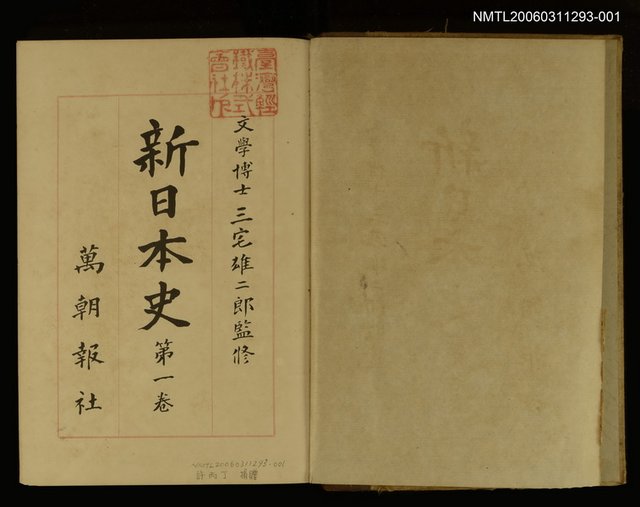 NMTL20060311293-001
臺灣輕
鐵株式
會社印
文學博士 三宅雄二郎監修
新日本史 第一卷
萬朝報社
NMTL20060311293-001
許丙丁 捐贈